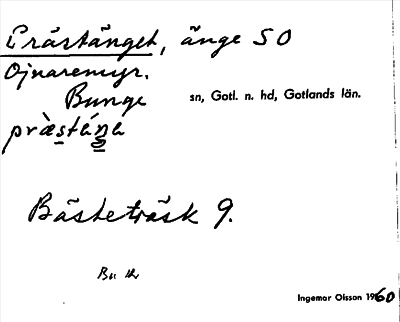 Prästänget, änge SO
Ojnaremyr.
Bunge sn, Gotl. n. hd, Gotlands län.
Bästeträsk 9.
Ingemar Olsson 1960